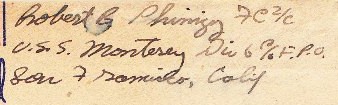 Robert G Phinizy FC 2/c
U.S.S. Monterey Div 6 c/o F.P.O.
San Francisco, Calif